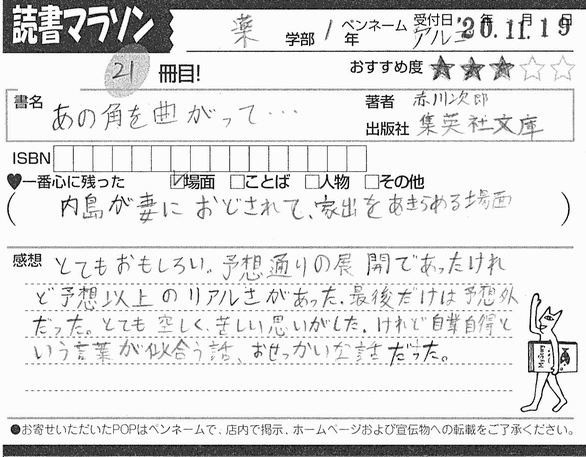 読書マラソン
薬 学部 / 1 年 ペンネーム アルニ 受付日 '20.11.19 年 月 日
21 冊目! おすすめ度 ★★★☆☆
書名 あの角を曲がって… 著者 赤川次郎
出版社 集英社文庫
ISBN
♥一番心に残った ☑場面 □ことば □人物 □その他
( 内島が妻におどされて、家出をあきらめる場面 )
感想 とてもおもしろい。予想通りの展開であったけれ
ど予想以上のリアルさがあった。最後だけは予想外
だった。とても空しく、苦しい思いがした。けれど自業自得と
いう言葉が似合う話、おせっかいな話だった。
●お寄せいただいたPOPはペンネームで、店内で掲示、ホームページおよび宣伝物への転載をご了承ください。